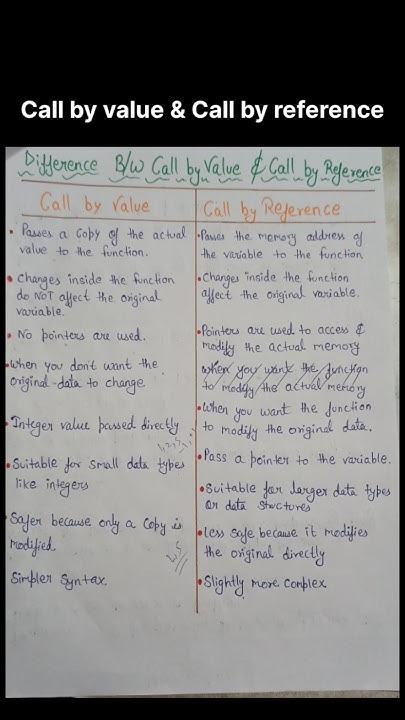 Call by value & Call by reference
Difference B/w Call by Value & Call by Reference
Call by Value
• Passes a Copy of the actual
value to the function.
• Changes inside the function
do NOT affect the original
variable.
• No pointers are used.
• When you don't want the
original data to change
• Integer value passed directly
• Suitable for small data types
like integers
• Safer because only a Copy is
modified.
Simpler Syntax.
Call by Reference
• Passes the memory address of
the variable to the function
• Changes inside the function
affect the original variable.
• Pointers are used to access &
modify the actual memory
When you want the function
to modify the actual memory
• When you want the function
to modify the original data.
• Pass a pointer to the variable.
• Suitable for larger data types
or data structures
• less safe because it modifies
the original directly
• Slightly more complex